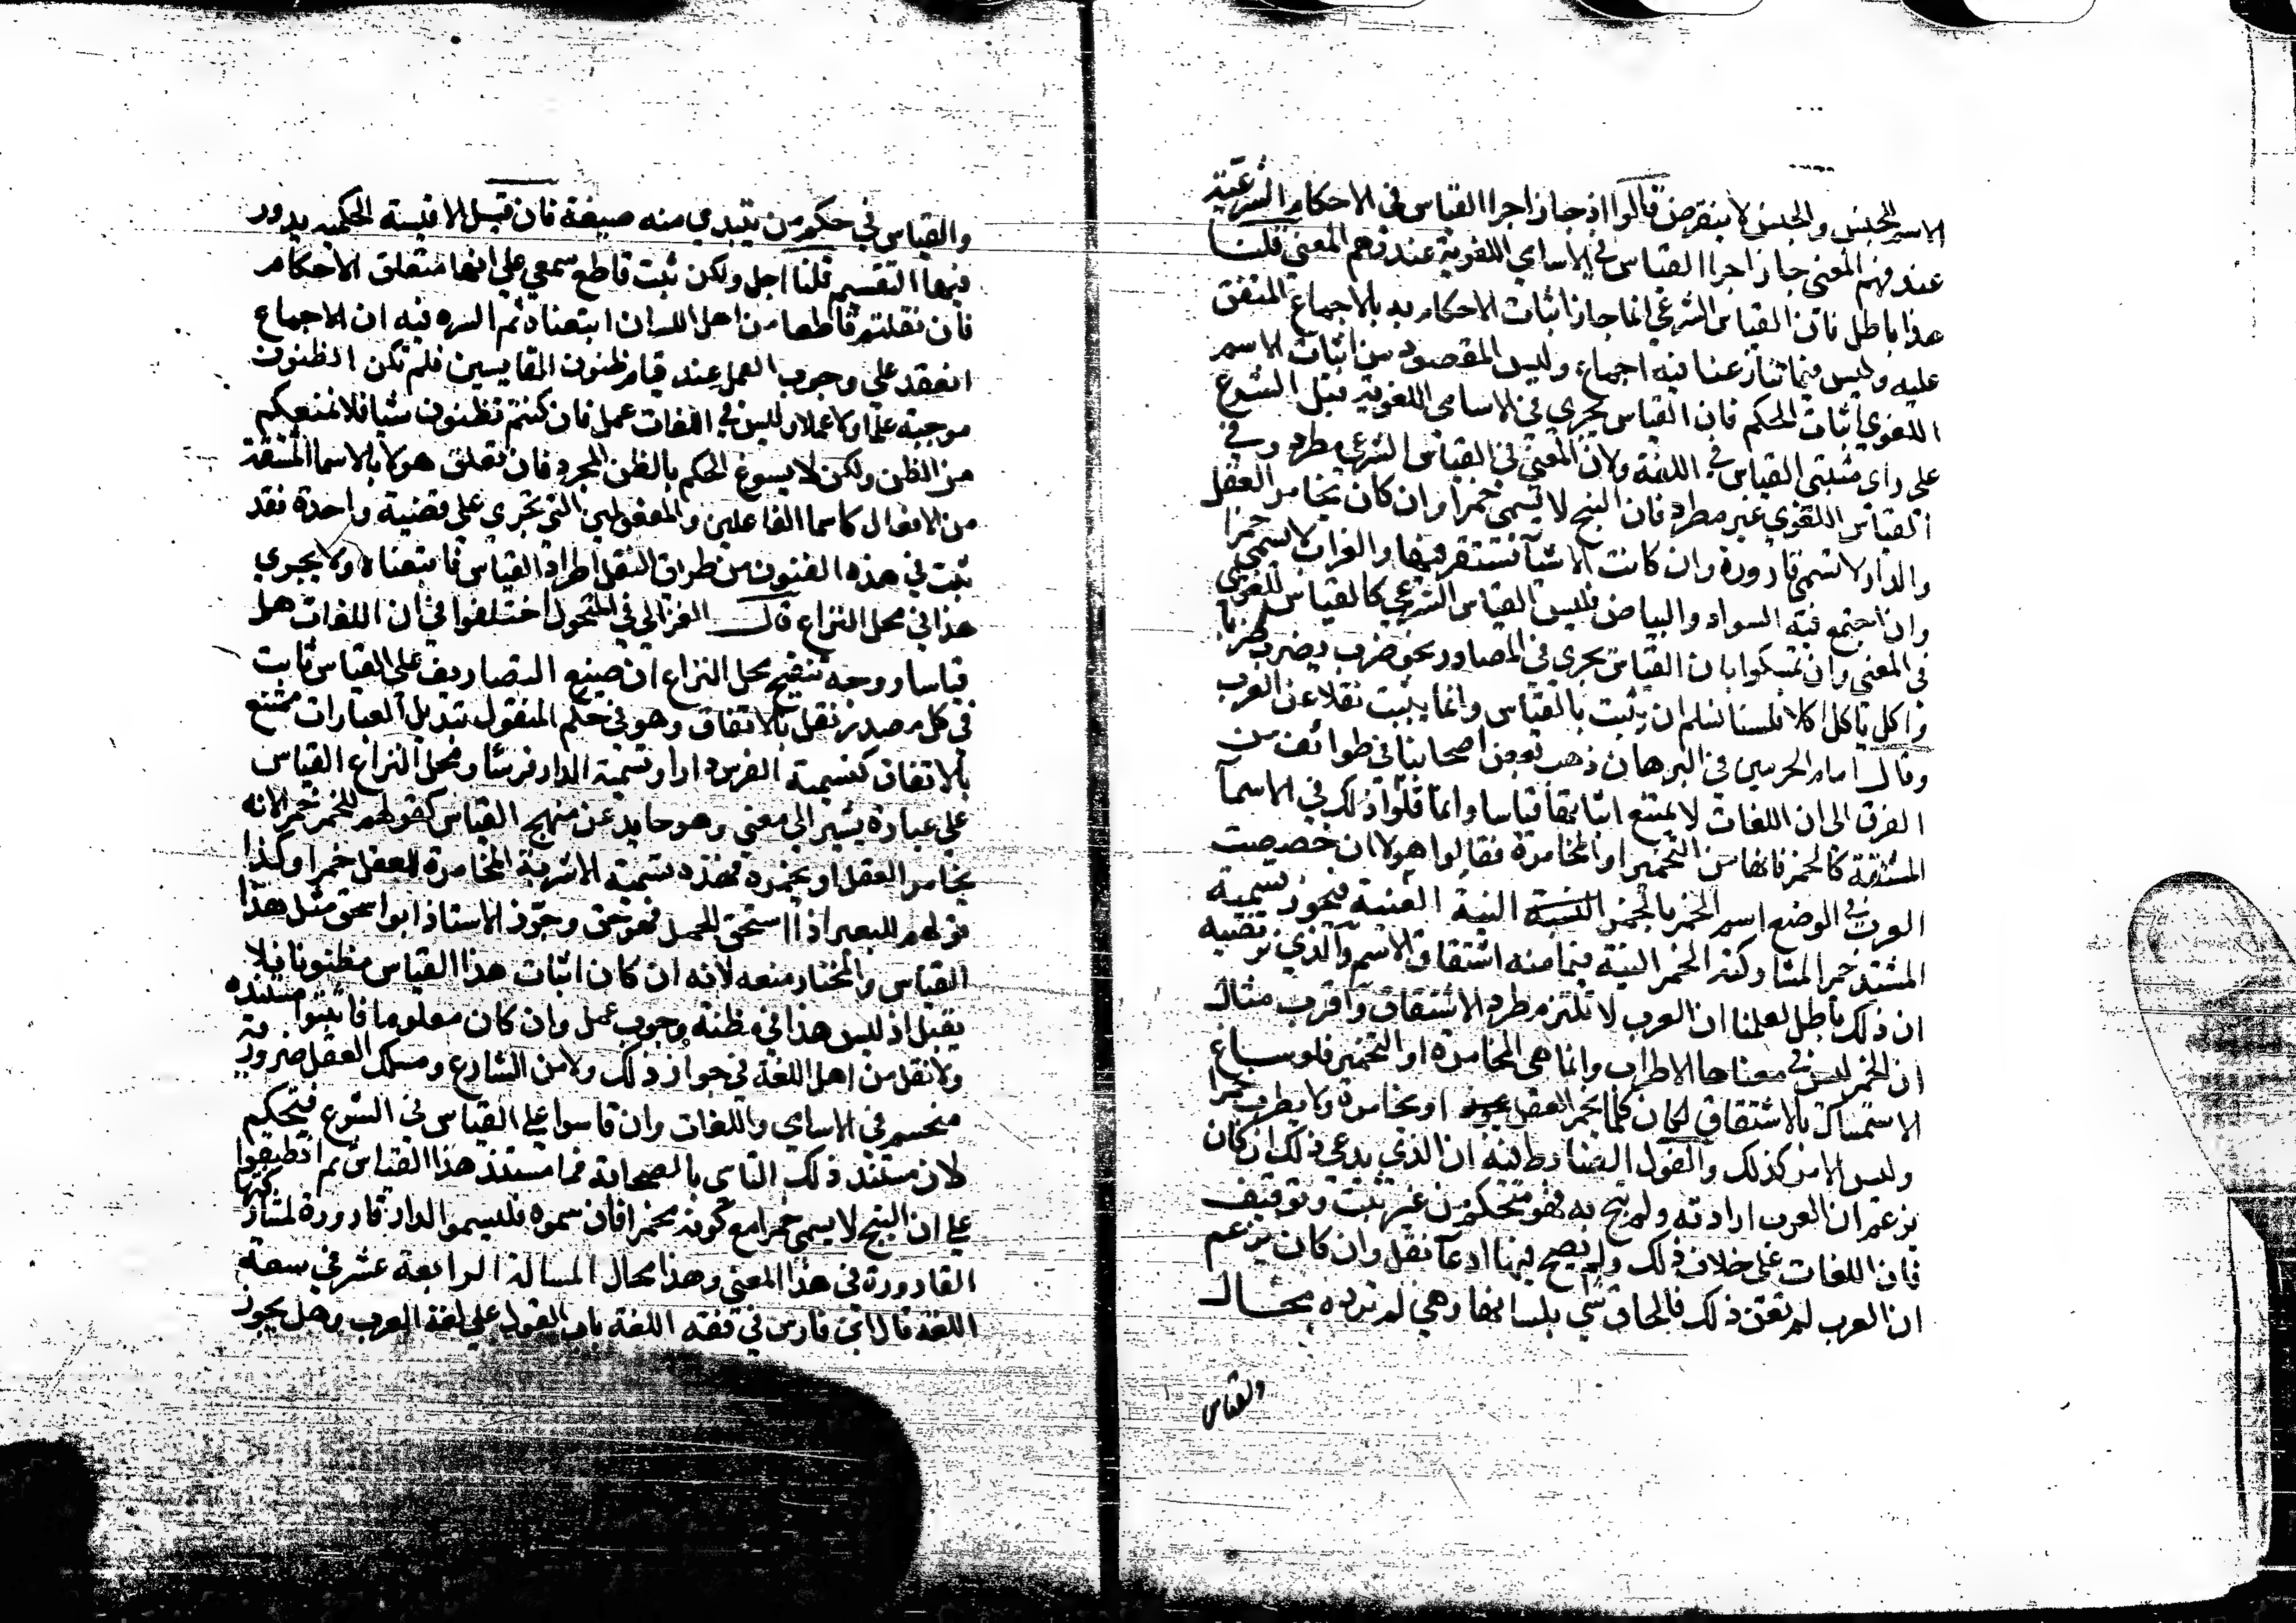 الاسم للجنس والجنس لا ينقرض قالوا اذ جاز اجرا القياس في الاحكام الشرعية
عند فهم المعنى جاز اجرا القياس في الاسامي اللغوية عند فهم المعنى قلنا
هذا باطل فان القياس الشرعي انما جاز اثبات الاحكام به بالاجماع المتفق
عليه وليس فيما تنازعنا فيه اجماع وليس المقصود من اثبات الاسم
اللغوي اثبات الحكم فان القياس يجري في الاسامي اللغوية قبل الشرع
على راى مثبتي القياس في اللغة ولان المعنى في القياس الشرعي مطرد وفي
القياس اللغوي غير مطرد فان البنج لا يسمى خمرا وان كان يخامر العقل
والدار لا تسمى قارورة وان كانت الاشيآ تستقر فيها والغراب لا يسمى
وان اجتمع فيه السواد والبياض فليس القياس الشرعي كالقياس اللغوي
في المعنى وان تمسكوا بان القياس يجري في المصادر نحو ضرب يضرب ضربا
واكل ياكل اكلا فلسنا نسلم ان يثبت بالقياس وانما يثبت نقلا عن العرب
وقال امام الحرمين في البرهان ذهب قوم من اصحابنا في طوائف من
الفرق الى ان اللغات لا يمتنع اثباتها قياسا وانما قالوا ذلك في الاسمآ
المشتقة كالخمر فانها من التخمير او المخامرة فقالوا هولا ان خصصت
العرب في الوضع اسم الخمر بالخمر النية العنبية فيجوز تسمية
المشتد خمرا لمشاركته الخمر النية فيما منه اشتقاق الاسم والذي نرتضيه
ان ذلك باطل لعلمنا ان العرب لا تلتزم مطرد الاشتقاق واقرب مثال
ان الخمر ليس في معناها الاطراب وانما هي المخامرة او التخمير فلو ساغ
الاستمساك بالاشتقاق لكان كلما يخمر العقل او يخامره ولا يطرب خمرا
وليس الامر كذلك والقول الضابط فيه ان الذي يدعي ذلك ان كان
يزعم ان العرب ارادته ولم تبح به فهو متحكم من غير ثبت وتوقيف
فان اللغات على خلاف ذلك ولم يصح فيها ادعآ نقل وان كان يزعم
ان العرب لم تعن ذلك فالحاق شي بلسانها وهي لم ترده محال
والقياس
والقياس في حكم من يبتدي منه صيغة فان قيل الاقيسة الحكمية يدور
فيها التقسيم قلنا اجل ولكن ثبت قاطع سمعي على انها متعلق الاحكام
فان نقلتم قاطعا من اهل اللسان اتبعناه ثم السر فيه ان الاجماع
انعقد على وجوب العمل عند قيام ظنون القايسين فلم تكن الظنون
موجبة علما ولا عملا وليس في اللغات عمل فان كنتم تظنون شيا فلا نمنعكم
من الظن ولكن لا يسوغ الحكم بالظن المجرد فان تعلق هولا بالاسما المشتقة
من الافعال كاسما الفاعلين والمفعولين التي تجري على قضية واحدة فقد
ثبت في هذه الفنون من طراق النقل اطراد القياس فاتبعناه ولا يجري
هذا في محل النزاع قال الغزالي في المنخول اختلفوا في ان اللغات هل
قياسا ووجه تنقيح محل النزاع ان صيغ التصاريف على القياس ثابت
في كل مصدر نقل بالاتفاق وهو في حكم المنقول تبديل العبارات ممتنع
بالاتفاق كتسمية الفرس دارا وتسمية الدار فرسا ومحل النزاع القياس
على عبارة يشير الى معنى وهو حايد عن منهج القياس كقولهم للخمر خمر لانه
يخامر العقل او يخمره فهذه تسمية الاشربة المخامرة للعقل خمرا وكذا
قولهم للبعير اذا استحق للحمل فهو حق وجوز الاستاذ ابو اسحق مثل هذا
القياس والمختار منعه لانه ان كان اثبات هذا القياس مظنونا فلا
يقبل اذ ليس هذا في مظنة وجوب عمل وان كان معلوما فاثبتوا مستنده
ولا نقل من اهل اللغة في جواز ذلك ولا من الشارع ومسلك العقل ضرورية
منحسم في الاسامي واللغات وان قاسوا على القياس في الشرع فتحكم
لان مستند ذلك التاسي بالصحابة فما مستند هذا القياس ثم اطبقوا
على ان البنج لا يسمى خمرا مع كونه مخمرا فان سموه فليسموا الدار قارورة لمشاركتها
القارورة في هذا المعنى وهذا محال المسالة الرابعة عشر في سعة
اللغة قال ابن فارس في فقه اللغة باب القول على لغة العرب وهل يجوز